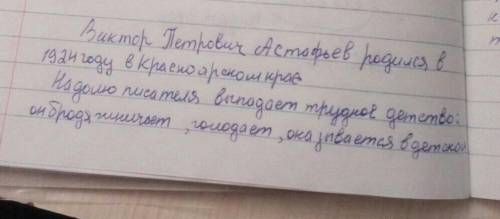 Виктор Петрович Астафьев родился в
1924 году в Красноярском крае
Надолю писателя выподает трудное детство:
он бродяжничает, голодает, оказывается в детском